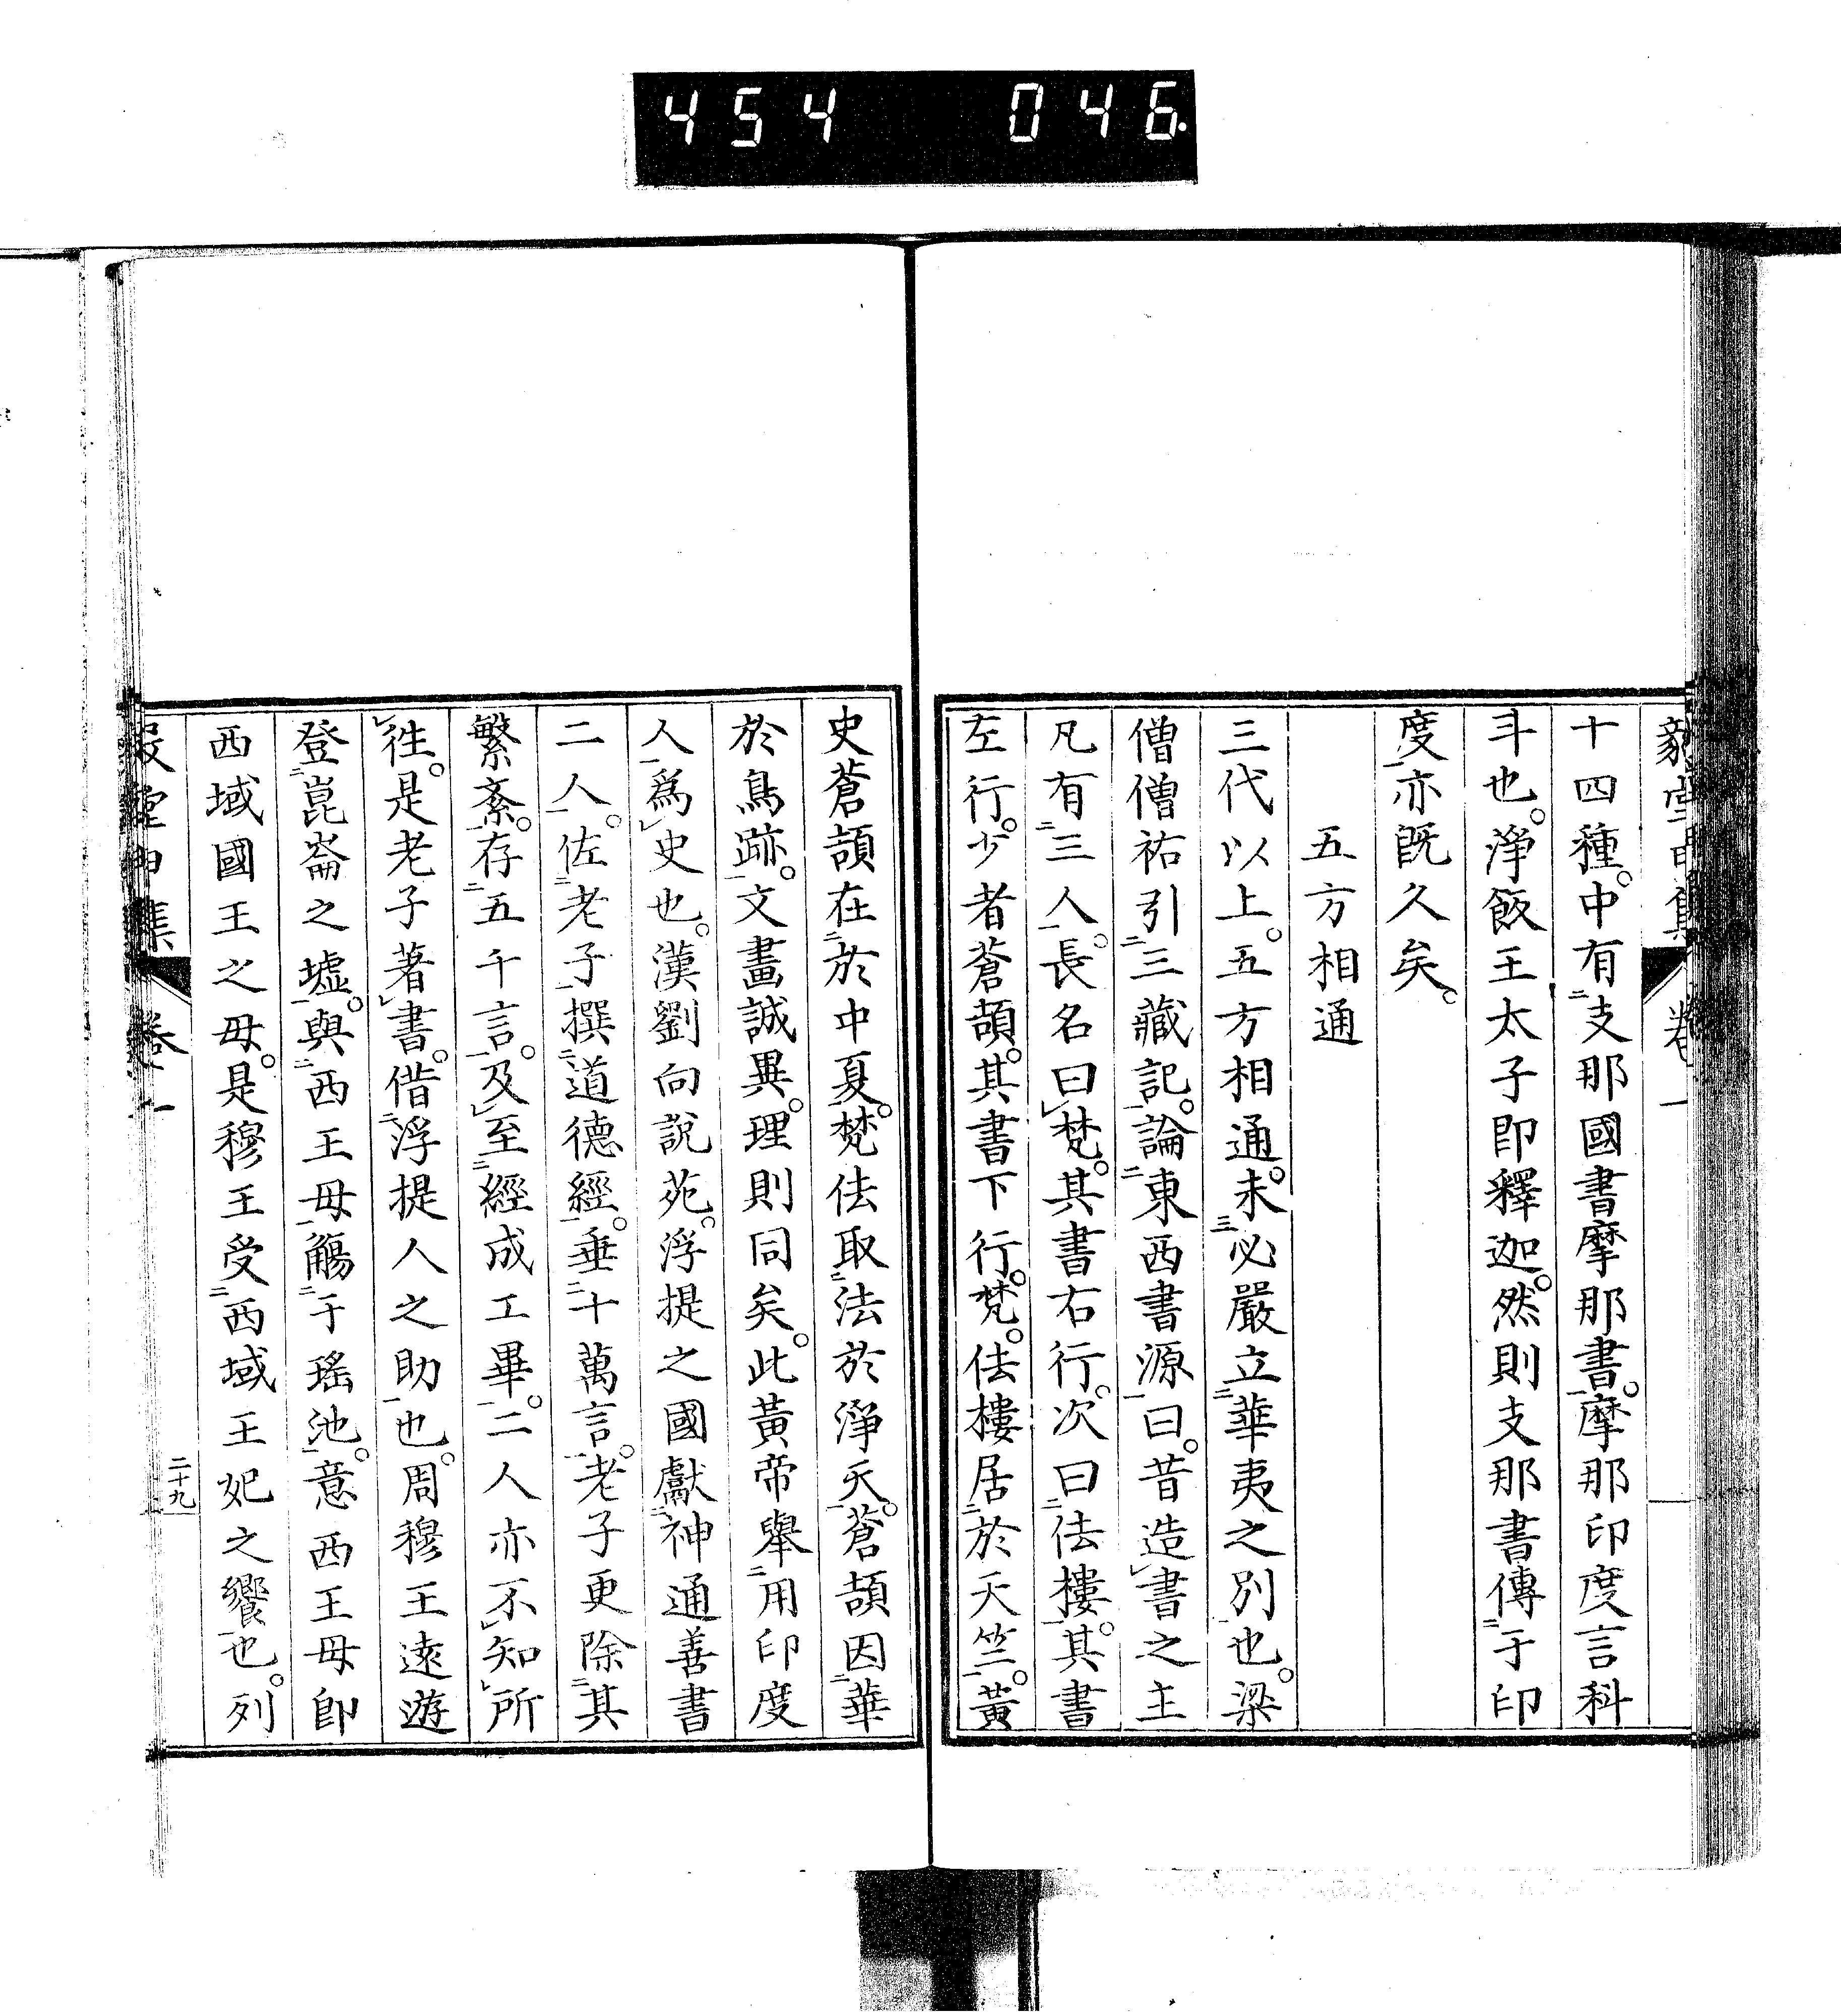 454 046
卷一
十四種。中有支那國書摩那書。摩那印度言科
斗也。淨飯王太子即釋迦。然則支那書傳于印
度亦既久矣。
五方相通
三代以上。五方相通。未必嚴立華夷之別也。梁
僧僧祐引三藏記。論東西書源曰。昔造書之主
凡有三人。長名曰梵。其書右行。次曰佉樓。其書
左行。少者蒼頡。其書下行。梵。佉樓居於天竺。黃
史蒼頡在於中夏。梵佉取法於淨天。蒼頡因華
於鳥跡。文畫誠異。理則同矣。此黃帝舉用印度
人爲史也。漢劉向說苑。浮提之國獻神通善書
二人。佐老子撰道德經。垂十萬言。老子更除其
繁紊。存五千言。及至經成工畢。二人亦不知所
徃。是老子著書。借浮提人之助也。周穆王遠遊
登崑崙之墟。與西王母觴于瑤池。意西王母卽
西域國王之母。是穆王受西域王妃之饗也。列
卷一
二十九